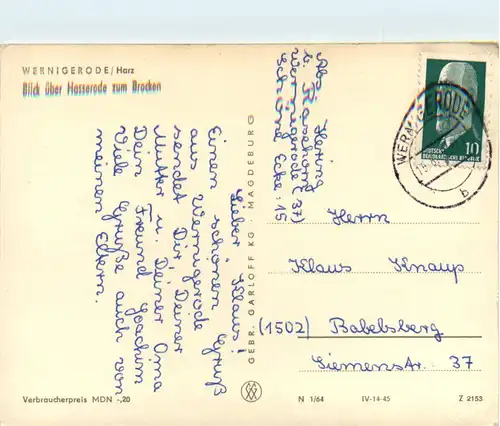 WERNIGERODE/Harz
Blick über Hasserode zum Brocken
Lieber Klaus!
Einen schönen Gruß
aus Wernigerode
sendet Dir Deiner
Mutter u. Deiner Oma
Dein Freund Joachim
Viele Grüße auch von
meinen Eltern.
Verbraucherpreis MDN -,20
GEBR. GARLOFF KG MAGDEBURG
Abs. Hering
b. Raschorn
Wernigerode (37)
Schöne Ecke 15
WERNIGERODE
b
10
DEUTSCHE
DEMOKRATISCHE REPUBLIK
Herrn
Klaus Knaup
(1502) Babelsberg
Siemensstr. 37
N 1/64 IV-14-45 Z 2153